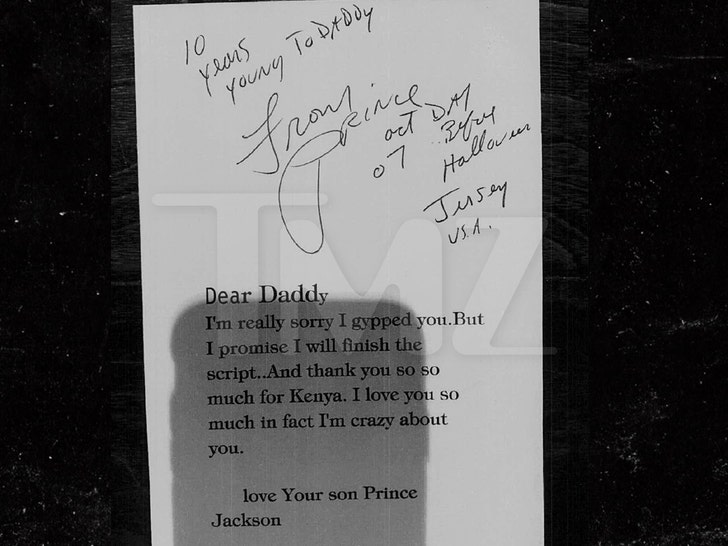 10
years
young To DADDy
From
Prince
oct DAY
07 Before
Halloween
Jersey
USA.
TMZ
Dear Daddy
I'm really sorry I gypped you.But
I promise I will finish the
script..And thank you so so
much for Kenya. I love you so
much in fact I'm crazy about
you.
love Your son Prince
Jackson